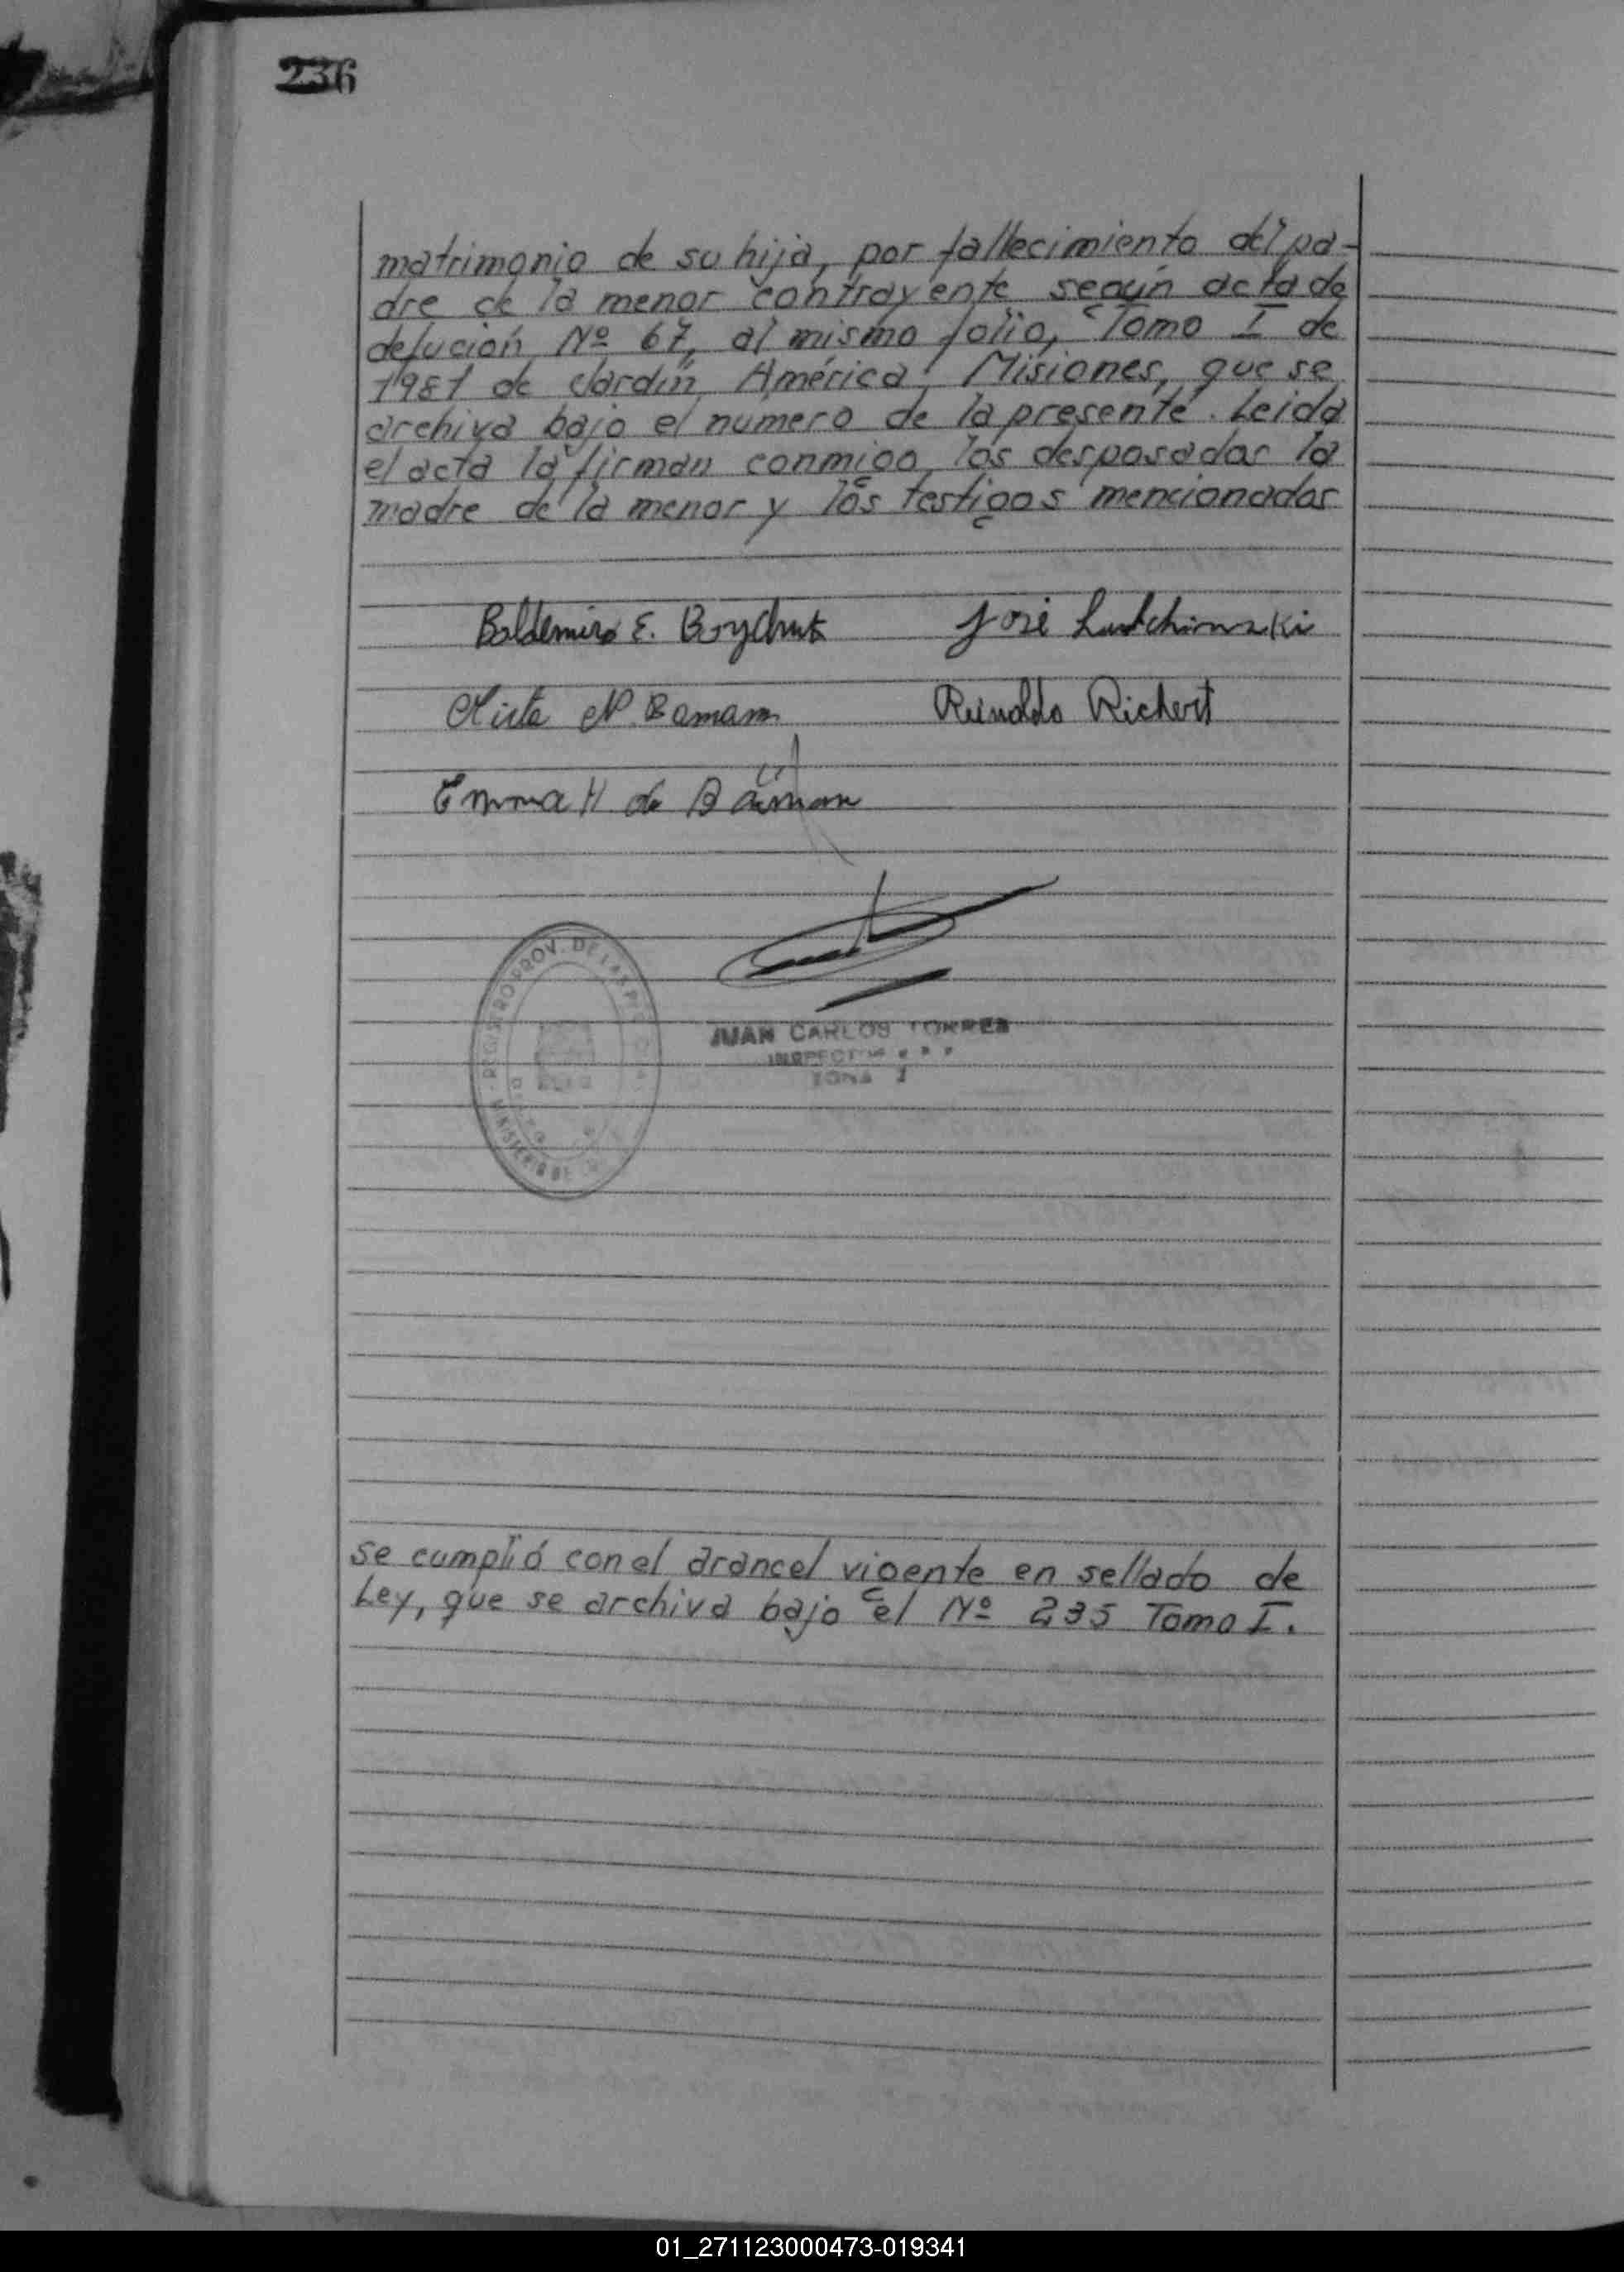 236
matrimonio de su hija, por fallecimiento del pa-
dre de la menor contrayente según acta de
defución Nº 67, al mismo folio, Tomo I de
1981 de Jardín América, Misiones, que se
archiva bajo el numero de la presente. Leida
el acta la firman conmigo los desposados la
madre de la menor y los testigos mencionados
Baldemiro E. Boychuk José Ludchimski
Mirta N. Bamann Reinoldo Richert
Emma H de Baiman
REGISTRO PROV. DE LAS
MINISTERIO DE
JUAN CARLOS TORRES
INSPECTOR
ZONA I
se cumplió con el arancel vigente en sellado de
Ley, que se archiva bajo el Nº 235 Tomo I.
01_271123000473-019341